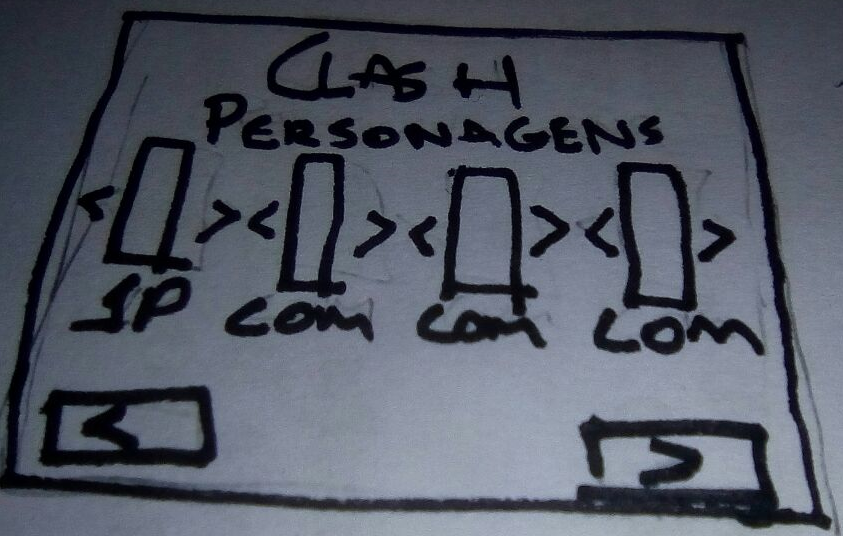 CLASH
PERSONAGENS
< > < > < > < >
1P COM COM COM
< >